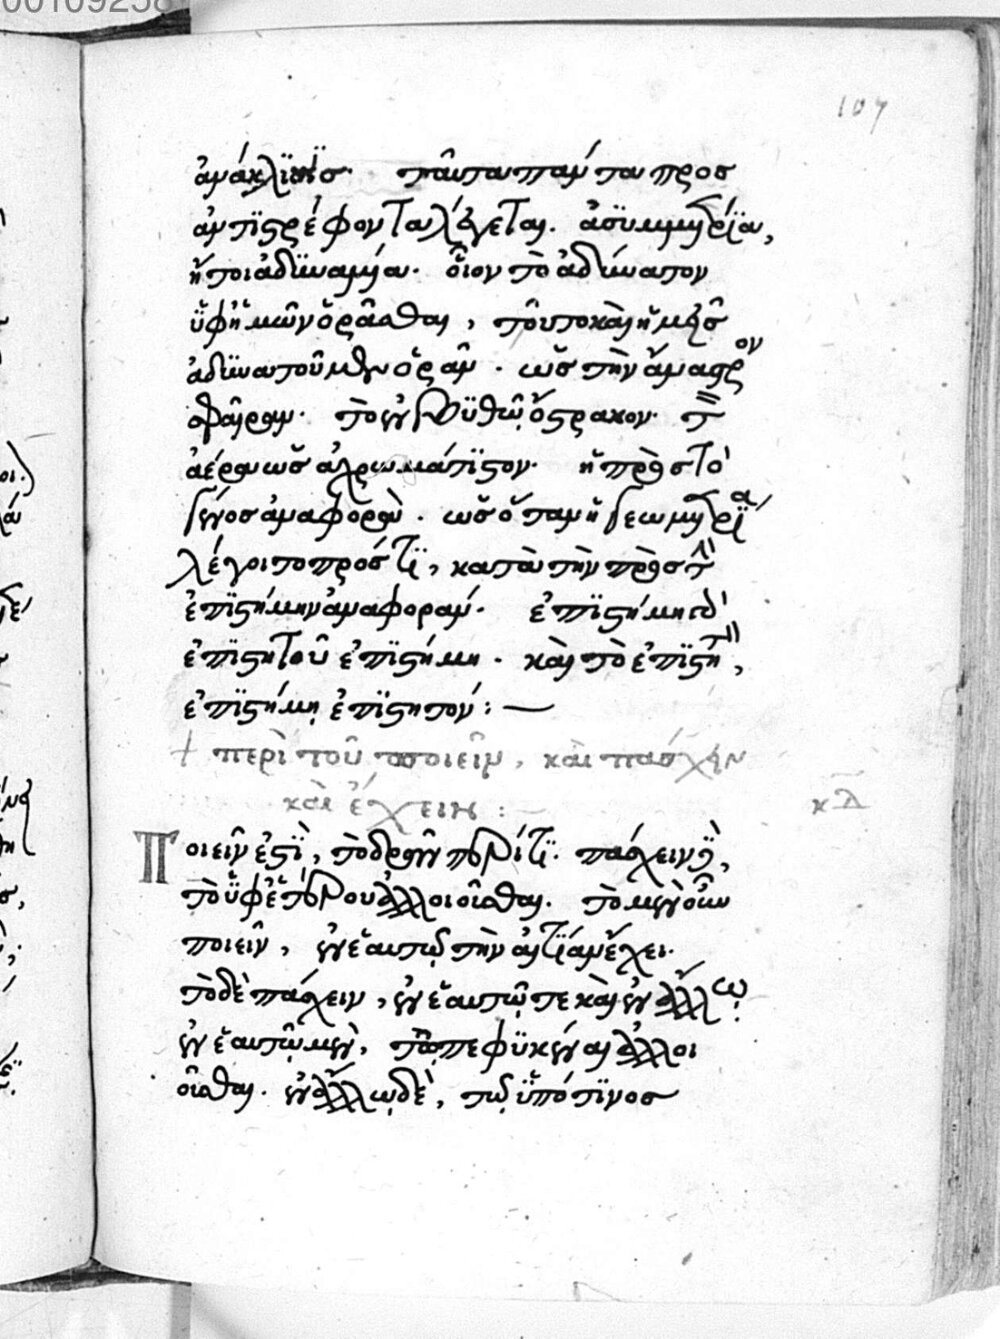 00109258
107
ἀνάκλισις· ταῦτα πάντα πρὸς
ἀντιστρέφοντα λέγεται. ἀσυμμετρία,
ἤτοι ἀδυναμία· οἷον τὸ ἀδύνατον
ὑφ' ἡμῶν ὁρᾶσθαι, τοῦτο καὶ ἡμεῖς
ἀδυνατοῦμεν ὁρᾶν. ὡς τὴν ἄναστρον
σφαῖραν· τὸ ἐν βυθῷ ὄστρακον· τὸν
ἀέρα ὡς ἀχρωμάτιστον· ἢ πρὸς τὸ
γένος ἀναφορὰν. ὡς ὅταν ἡ γεωμετρία
λέγοιτο πρός τι, κατὰ τὴν πρὸς τὴν
ἐπιστήμην ἀναφοράν· ἐπιστήμη δ'
ἐπιστητοῦ ἐπιστήμη. καὶ τὸ ἐπιστητὸν,
ἐπιστήμῃ ἐπιστητόν: —
+ περὶ τοῦ ποιεῖν, καὶ πάσχειν
καὶ ἔχειν: —
κδ
Ποιεῖν ἐστὶ, τὸ δρᾶν περί τι· πάσχειν δὲ,
τὸ ὑφ' ἑτέρου ἀλλοιοῦσθαι. τὸ μὲν οὖν
ποιεῖν, ἐν ἑαυτῷ τὴν αἰτίαν ἔχει·
τὸ δὲ πάσχειν, ἐν ἑαυτῷ τε καὶ ἐν ἄλλῳ·
ἐν ἑαυτῷ μὲν, τῷ πεφυκέναι ἀλλοι
οῦσθαι. ἐν ἄλλῳ δὲ, τῷ ὑπό τινος